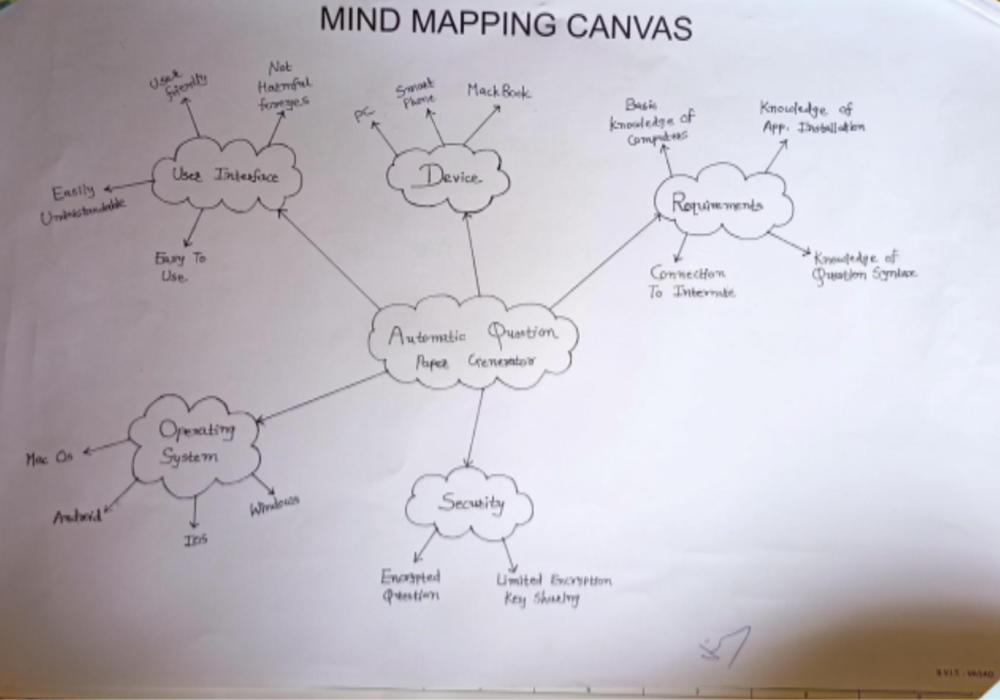 MIND MAPPING CANVAS
User
friendly
Not
Harmful
for eyes
Easily
Understandable
User Interface
Easy To
Use
PC
Smart
Phone
MackBook
Device
Basic
Knowledge of
Computers
Knowledge of
App. Installation
Requirements
Connection
To Internate
Knowledge of
Question Syntax
Automatic Question
Paper Generator
Operating
System
Mac Os
Android
IOS
Windows
Security
Encrypted
Question
Limited Encryption
Key Sharing
S.V.I.T. - VASAD